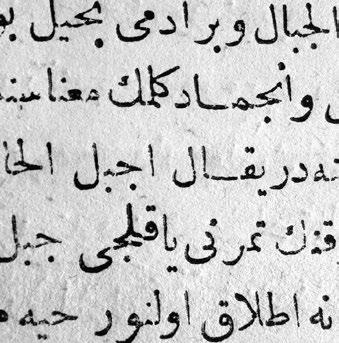 الجبال وبر ادمى بخيل بو
وانجماد كلمك معناسنه
ته در يقال اجبل الحا
تمرنى ياقيلجى جبل
نه اطلاق اولنور حيه م